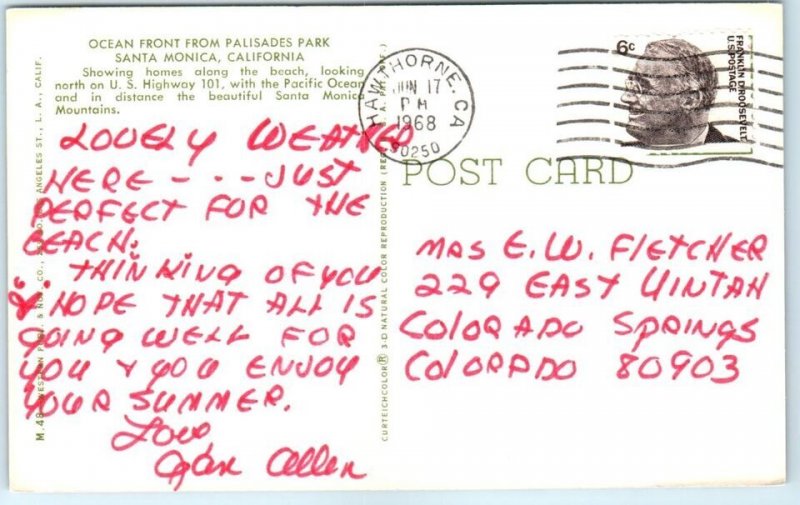 OCEAN FRONT FROM PALISADES PARK
SANTA MONICA, CALIFORNIA
Showing homes along the beach, looking
north on U. S. Highway 101, with the Pacific Ocean
and in distance the beautiful Santa Monica
Mountains.
LOVELY WEATHER
HERE - - - JUST
PERFECT FOR THE
BEACH.
THINKING OF YOU
& HOPE THAT ALL IS
GOING WELL FOR
YOU & YOU ENJOY
YOUR SUMMER.
Love,
Allen
M.48
WESTERN
CO.,
ANGELES ST., L. A., CALIF.
CURTEICHCOLOR® 3-D NATURAL COLOR REPRODUCTION (REG. U.S.A. PAT. OFF.)
HAWTHORNE, CA
JUN 17
PM
1968
90250
6c
FRANKLIN D. ROOSEVELT
U.S. POSTAGE
POST CARD
MRS E. W. FLETCHER
229 EAST UINTAH
COLORADO SPRINGS
COLORADO 80903